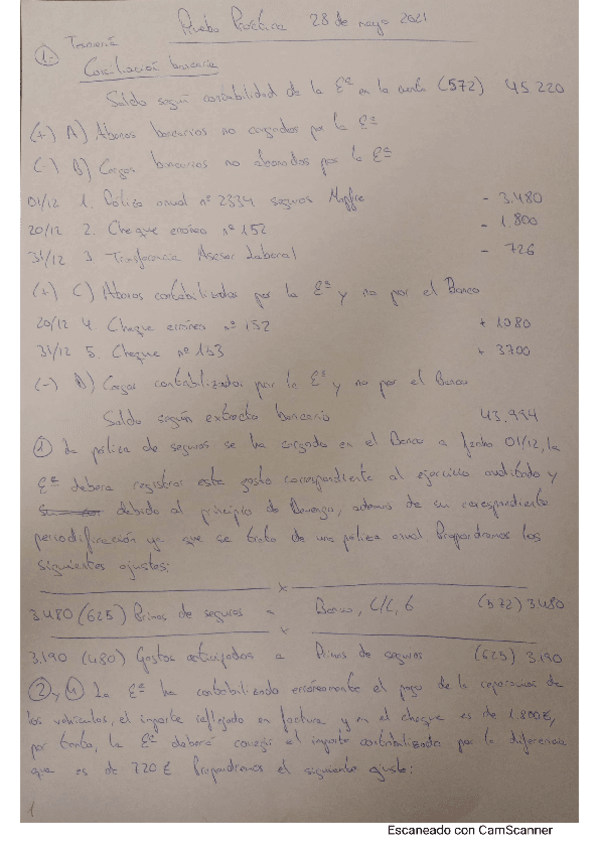 Prueba Práctica 28 de mayo 2021
1. Tesorería
Conciliación bancaria
Saldo según contabilidad de la Eª en la cuenta (572) 45 220
(+) A) Abonos bancarios no cargados por la Eª
(-) B) Cargos bancarios no abonados por la Eª
01/12 1. Póliza anual nº 2334 seguros Mapfre - 3.480
20/12 2. Cheque erróneo nº 152 - 1.800
31/12 3 Transferencia Asesor Laboral - 726
(+) C) Abonos contabilizados por la Eª y no por el Banco
20/12 4 Cheque erróneo nº 152 + 1080
31/12 5. Cheque nº 153 + 3700
(-) D) Cargos contabilizados por la Eª y no por el Banco
Saldo según extracto bancario 43.994
① La póliza de seguros se ha cargado en el Banco a fecha 01/12, la
Eª deberá registrar este gasto correspondiente al ejercicio auditado y
debido al principio de Devengo, además de su correspondiente
periodificación ya que se trata de una póliza anual Propondremos los
siguientes ajustes:
x
3.480 (625) Primas de seguros a Banco, c/c, € (572) 3.480
x
3.190 (480) Gastos anticipados a Primas de seguros (625) 3.190
② y ④ La Eª ha contabilizado erróneamente el pago de la reparación de
los vehículos, el importe reflejado en factura y en el cheque es de 1.800€,
por tanto, la Eª deberá corregir el importe contabilizado por la diferencia
que es de 720€ Propondremos el siguiente ajuste:
Escaneado con CamScanner